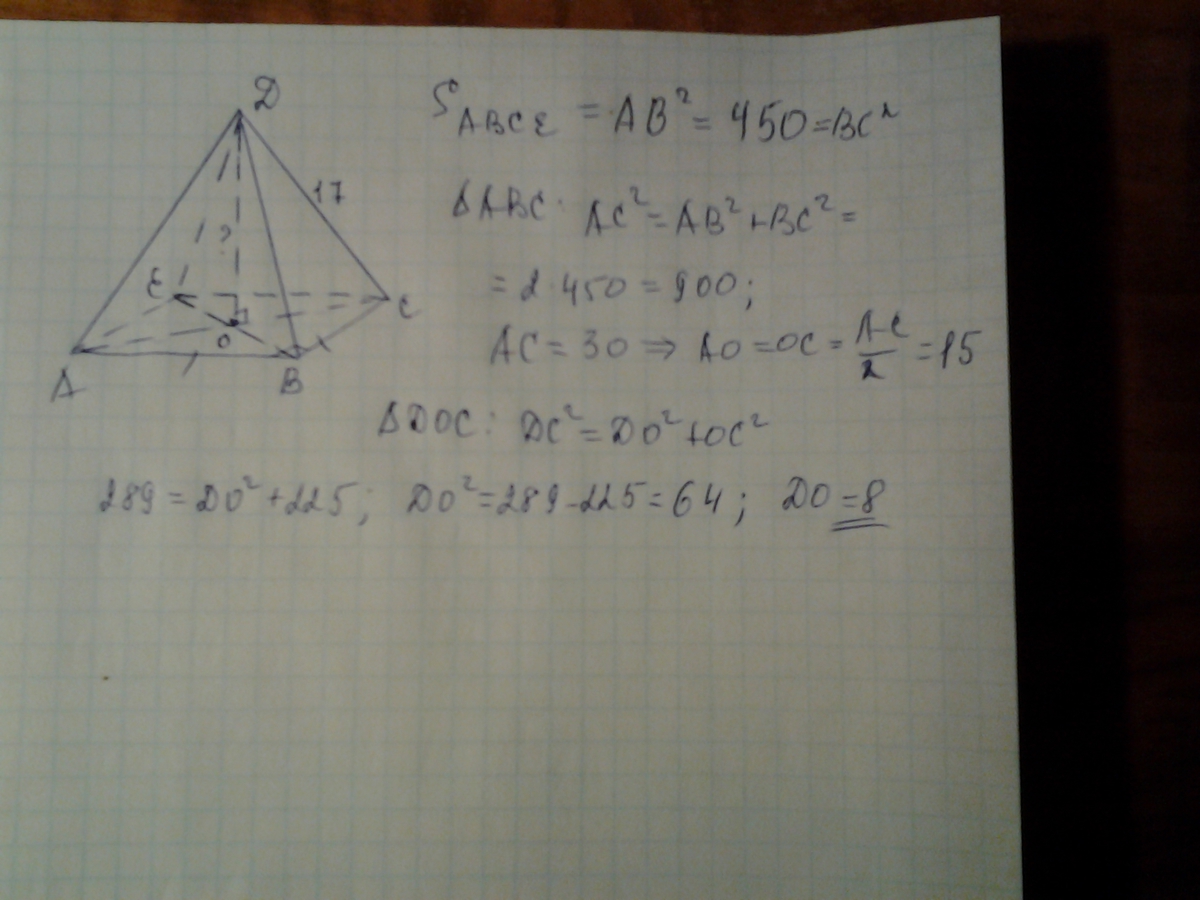 D
17
?
E
C
O
A
B
S ABCE = AB² = 450 = BC²
ΔABC: AC² = AB² + BC² =
= 2·450 = 900;
AC = 30 ⇒ AO = OC = AC/2 = 15
ΔDOC: DC² = DO² + OC²
289 = DO² + 225; DO² = 289 - 225 = 64; DO = 8